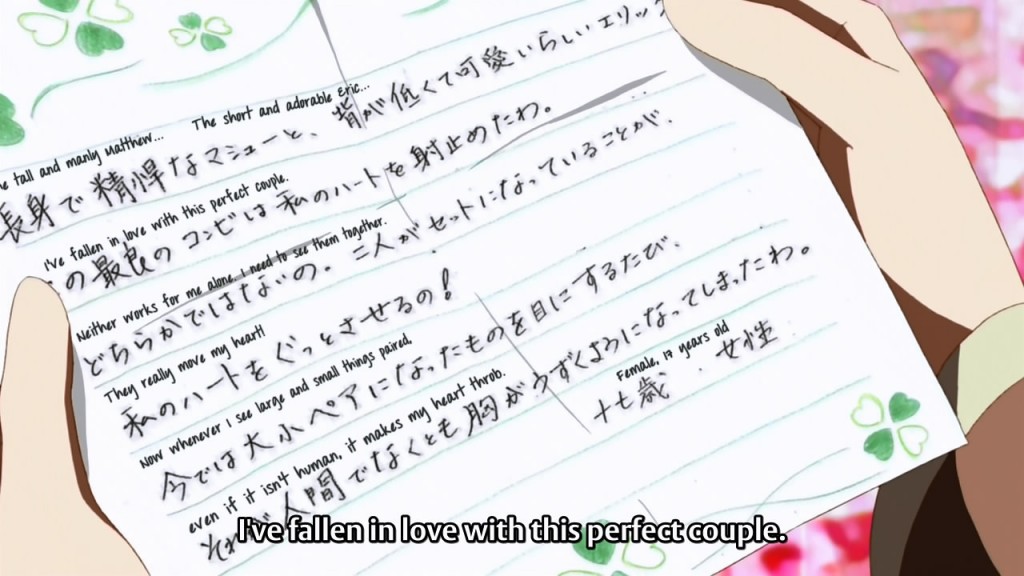 The tall and manly Matthew... The short and adorable Eric...
長身で精悍なマシューと、背が低くて可愛いらしいエリック
I've fallen in love with this perfect couple.
の最良のコンビは私のハートを射止めたわ。
Neither works for me alone, I need to see them together.
どちらかではないの。二人がセットになっていることが、
They really move my heart!
私のハートをぐっとさせるの!
Now whenever I see large and small things paired,
今では大小ペアになったものを目にするたび、
even if it isn't human, it makes my heart throb.
それが人間でなくとも胸がうずくようになってしまったわ。
Female, 17 years old
十七歳 女性
I've fallen in love with this perfect couple.